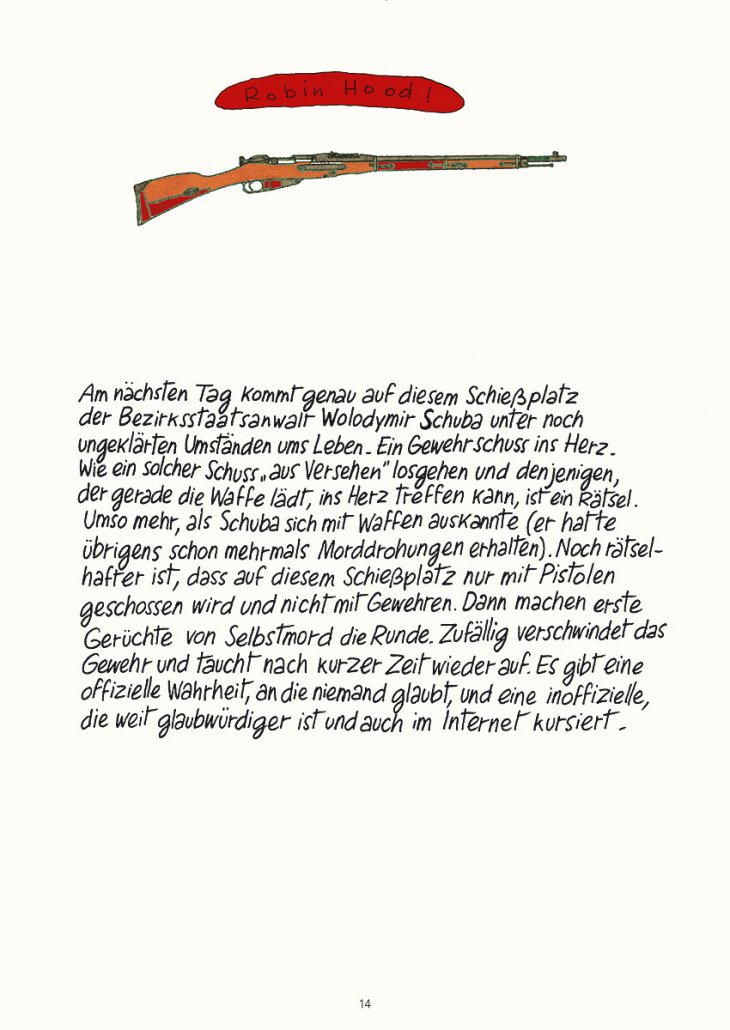 Robin Hood!
Am nächsten Tag kommt genau auf diesem Schießplatz
der Bezirksstaatsanwalt Wolodymir Schuba unter noch
ungeklärten Umständen ums Leben. Ein Gewehrschuss ins Herz.
Wie ein solcher Schuss „aus Versehen" losgehen und denjenigen,
der gerade die Waffe lädt, ins Herz treffen kann, ist ein Rätsel.
Umso mehr, als Schuba sich mit Waffen auskannte (er hatte
übrigens schon mehrmals Morddrohungen erhalten). Noch rätsel-
hafter ist, dass auf diesem Schießplatz nur mit Pistolen
geschossen wird und nicht mit Gewehren. Dann machen erste
Gerüchte von Selbstmord die Runde. Zufällig verschwindet das
Gewehr und taucht nach kurzer Zeit wieder auf. Es gibt eine
offizielle Wahrheit, an die niemand glaubt, und eine inoffizielle,
die weit glaubwürdiger ist und auch im Internet kursiert.
14